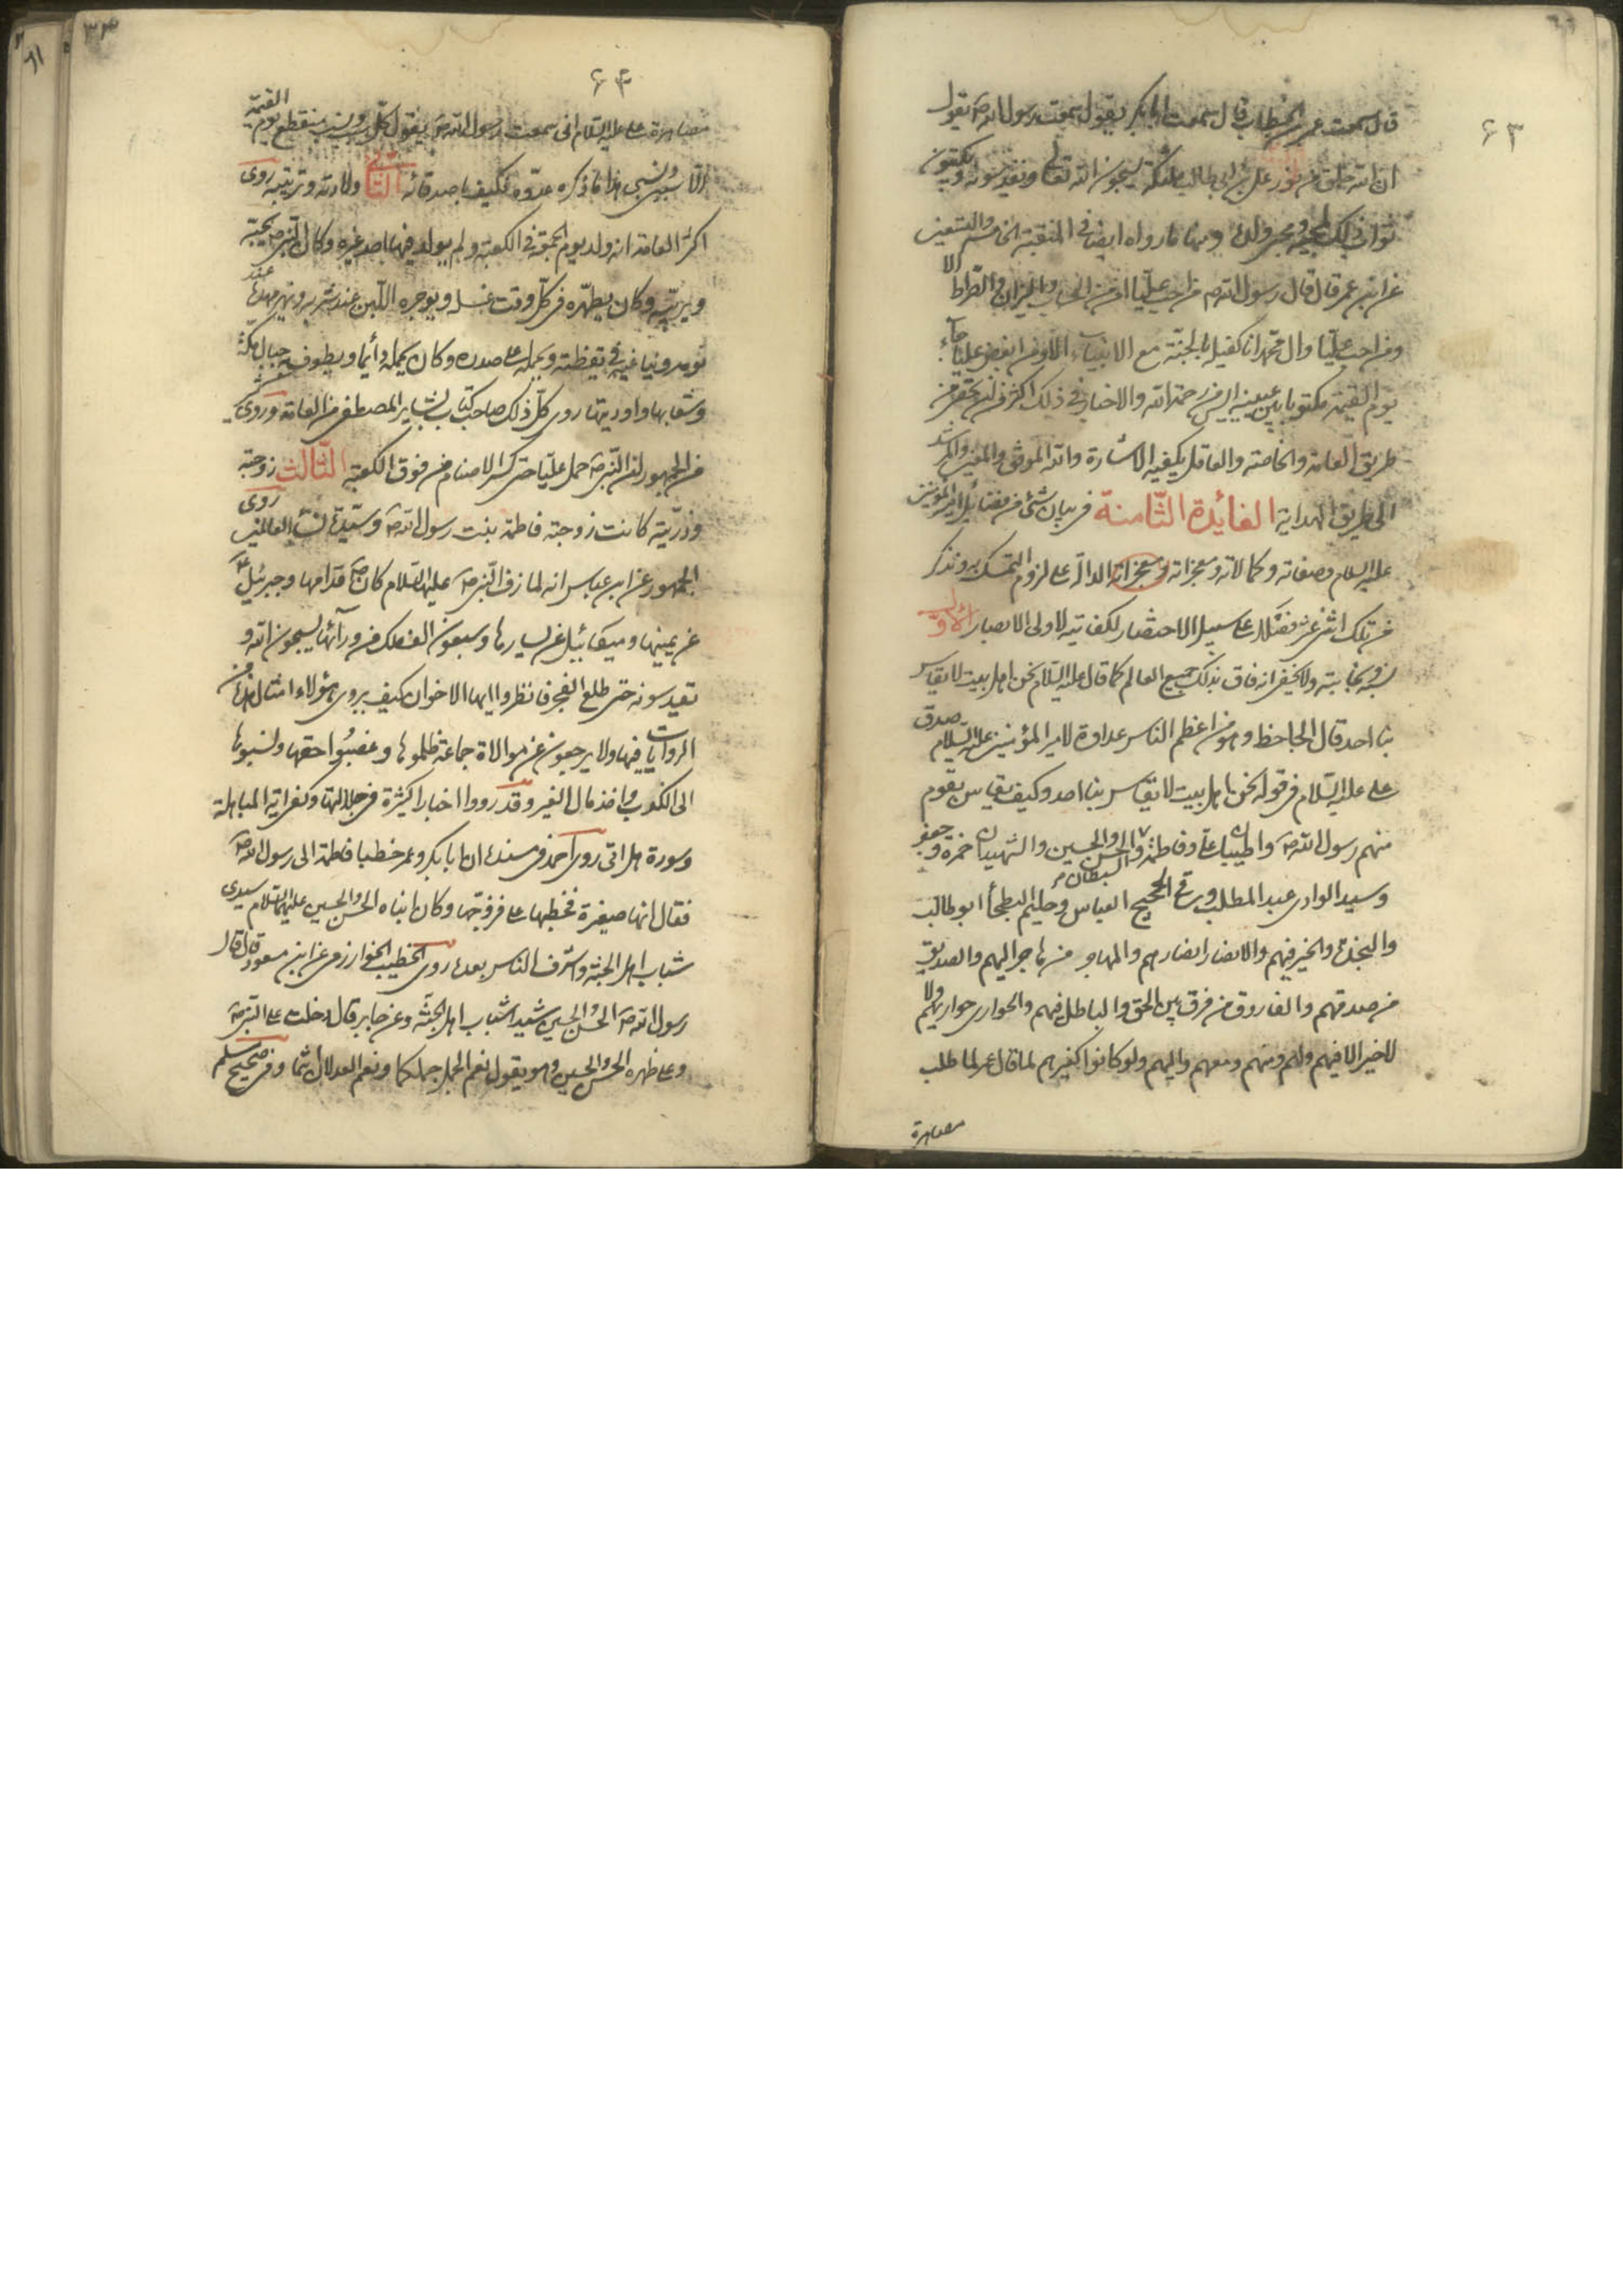 ۶۳
قال سمعت عمر بن الخطاب قال سمعت ابابكر يقول سمعت رسول الله ص يقول
ان الله خلق من نور على بن ابى طالب ملئكة يسبحون الله تعالى ويقدسونه ويكتبون
ثواب ذلك لمحبيه ومحبى ولده ومنها ما رواه ايضا فى المنقبة الخامس والتسعين
عن ابن عمر قال قال رسول الله ص من احب عليا امن من الحساب والميزان والصراط الا
ومن احب عليا وال محمد انا كفيله بالجنة مع الانبياء الا ومن ابغض عليا جاء
يوم القيمة مكتوبا بين عينيه ايس من رحمة الله والاخبار فى ذلك اكثر من ان يحصى من
طريق العامة والخاصة والعاقل يكفيه الاشارة والله الموفق والمعين والمرشد
الى طريق الهداية الفائدة الثامنة فى بيان شئ من فضائل امير المؤمنين
عليه السلام وصفاته وكمالاته ومعجزاته ومعجزاته الدالة على لزوم التمسك به ونذكر
من تلك اثنى عشر فضلا على سبيل الاختصار لكفايته لاولى الابصار الاول
نسبه ونجابته ولا يخفى انه فاق بذلك جميع العالم كما قال عليه السلام نحن اهل بيت لا يقاس
بنا احد قال الجاحظ وهو من اعظم الناس عداوة لامير المؤمنين عليه السلام صدق
على عليه السلام فى قوله نحن اهل بيت لا يقاس بنا احد وكيف يقاس بقوم
منهم رسول الله ص والطيبان على وفاطمة والسبطان الحسن والحسين والشهيدان حمزة وجعفر
وسيد الوادى عبد المطلب وساقى الحجيج العباس وحليم البطحاء ابو طالب
والنجدة والخير فيهم والانصار انصارهم والمهاجر من هاجر اليهم والصديق
من صدقهم والفاروق من فرق بين الحق والباطل فيهم والحوارى حواريهم ولا
لاخير الا فيهم ولهم ومنهم ومعهم واليهم ولو كانوا كغيرهم لما قال عمر لما طلب
مصاهرة
۶۴
مصاهرة على عليه السلام انى سمعت رسول الله ص يقول كل سبب ونسب منقطع يوم القيمة
الا سببى ونسبى هذا ما ذكره عدوه فكيف باصدقائه الثانى ولادته وتربيته روى
اكثر العامة انه ولد يوم الجمعة فى الكعبة ولم يولد فيها احد غيره وكان النبى ص يحبه
ويربيه وكان يطهره فى كل وقت غسله ويوجره اللبن عند شربه ويهز مهده عند
نومه ويناغيه فى يقظته ويحمله على صدره وكان يحمله دائما ويطوف به جبال مكة
وشعابها واوديتها روى كل ذلك صاحب كتاب بشاير المصطفى من العامة وروى
من الجمهور ان النبى ص حمل عليا حتى كسر الاصنام من فوق الكعبة الثالث زوجته
وذريته كانت زوجته فاطمة بنت رسول الله ص وسيدة نساء العالمين روى
الجمهور عن ابن عباس انه لما زف النبى ص عليها السلام كان ص قدامها وجبرئيل
عن يمينها وميكائيل عن يسارها وسبعون الف ملك من ورائها يسبحون الله و
تقدسونه حتى طلع الفجر فانظروا ايها الاخوان كيف يروى هؤلاء امثال هذه من
الروايات فيها ولا يرجعون عن موالاة جماعة ظلموها وغصبوا حقها ونسبوها
الى الكذب واخذ مال الغير وقد رووا اخبارا كثيرة فى جلالتها وكفى اية المباهلة
وسورة هل اتى روى احمد فى مسنده ان ابا بكر وعمر خطبا فاطمة الى رسول الله ص
فقال انها صغيرة فخطبها على فزوجها وكان ابناه الحسن والحسين عليهما السلام سيدى
شباب اهل الجنة واشرف الناس بعده روى الخطيب الخوارزمى عن ابن مسعود قال قال
رسول الله ص الحسن والحسين سيدا شباب اهل الجنة وعن جابر قال دخلت على النبى ص
وعلى ظهره الحسن والحسين وهو يقول نعم الجمل جملكما ونعم العدلان انتما وفى صحيح مسلم